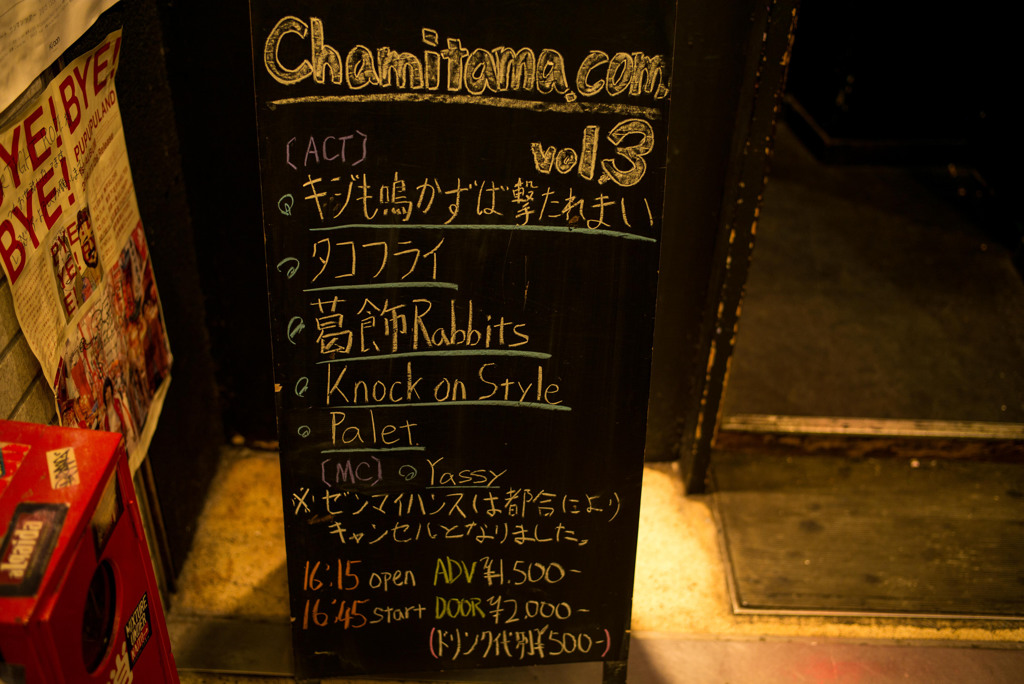 Chamitama.com.
vol.3
[ACT]
キジも鳴かずば撃たれまい
タコフライ
葛飾Rabbits
Knock on Style
Palet
[MC] Yassy
※ゼンマイハンスは都合により
キャンセルとなりました。
16:15 open ADV ¥1.500-
16:45 start DOOR ¥2.000-
(ドリンク代別¥500-)
BYE! BYE!
BYE!
PUPUPULAND